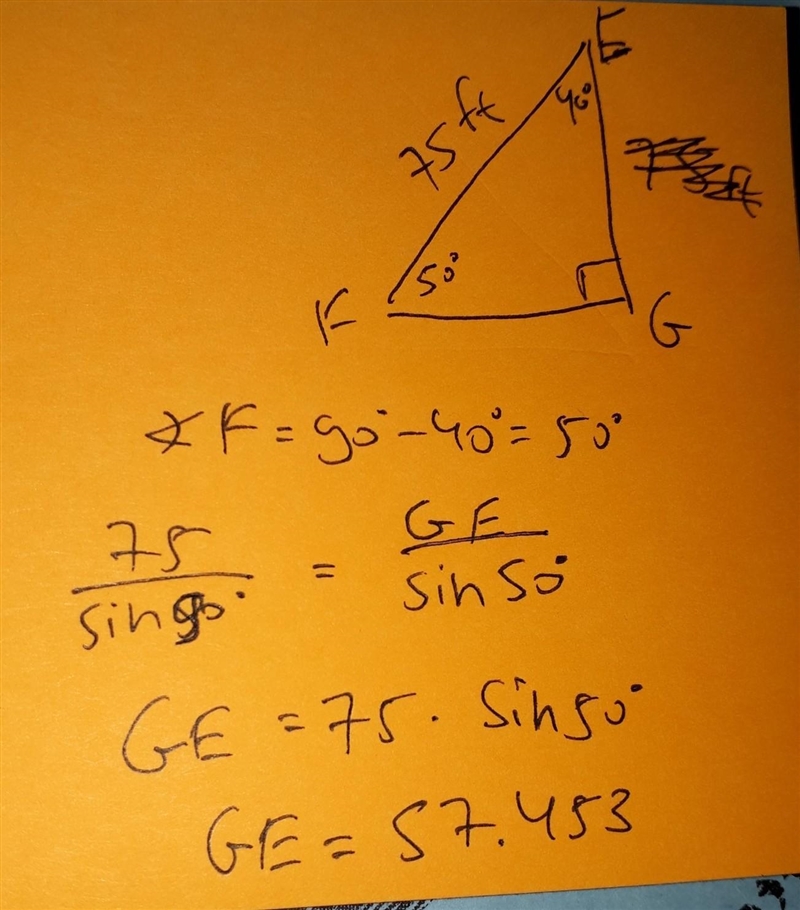 E
40°
75 ft
50°
F
G
∢ F = 90° - 40° = 50°
75 / sin 90° = GE / sin 50°
GE = 75 · sin 50°
GE = 57.453